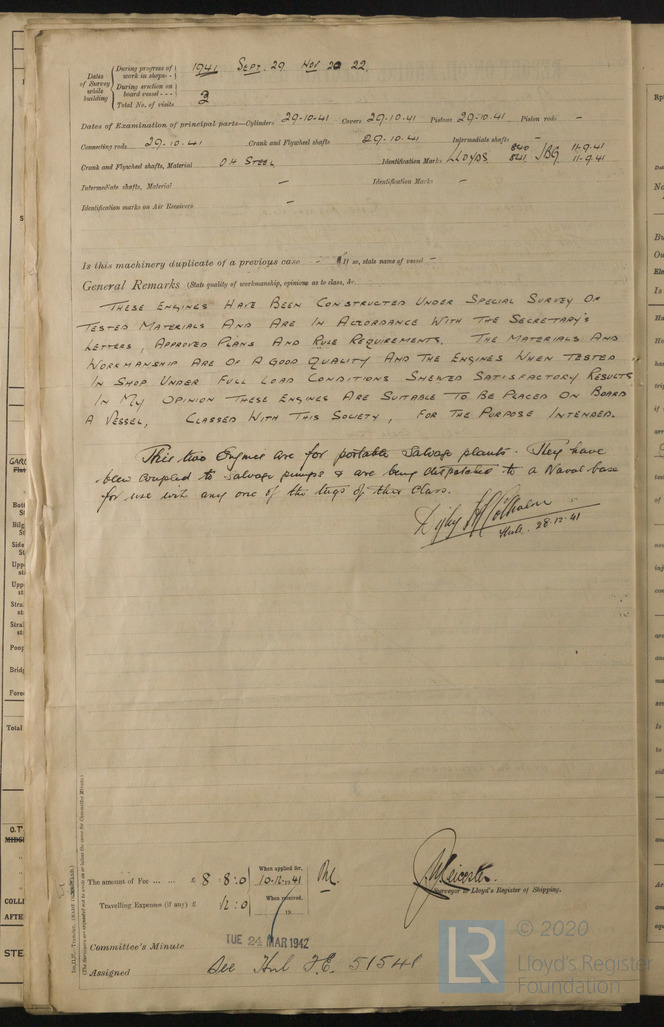 Dates of Survey while building
During progress of work in shops - - 1941 Sept. 29 Nov 20 22
During erection on board vessel - - -
Total No. of visits 3
Dates of Examination of principal parts—Cylinders 29-10-41 Covers 29-10-41 Pistons 29-10-41 Piston rods -
Connecting rods 29-10-41 Crank and Flywheel shafts 29-10-41 Intermediate shafts -
Crank and Flywheel shafts, Material OH Steel Identification Marks Lloyds 840 841 JBG 11-9-41 11-9-41
Intermediate shafts, Material - Identification Marks -
Identification marks on Air Receivers -
Is this machinery duplicate of a previous case - If so, state name of vessel -
General Remarks (State quality of workmanship, opinions as to class, &c.
These Engines Have Been Constructed Under Special Survey Of
Tested Materials And Are In Accordance With The Secretary's
Letters, Approved Plans And Rule Requirements. The Materials And
Workmanship Are Of A Good Quality And The Engines When Tested
In Shop Under Full Load Conditions Shewed Satisfactory Results.
In My Opinion These Engines Are Suitable To Be Placed On Board
A Vessel, Classed With This Society, For The Purpose Intended.
This two Engines are for portable Salvage plants. They have
been coupled to Salvage pumps & are being despatched to a Naval base
for use with any one of the tugs of this Class.
Hull. 28-12-41
The amount of Fee ... ... £ 8 : 8 : 0 When applied for, 10-12-1941
Travelling Expenses (if any) £ 12 : 0 When received, 19
Surveyor to Lloyd's Register of Shipping.
Committee's Minute TUE 24 MAR 1942
Assigned See Hul F.E. 51541
© 2020
LR
Lloyd's Register
Foundation